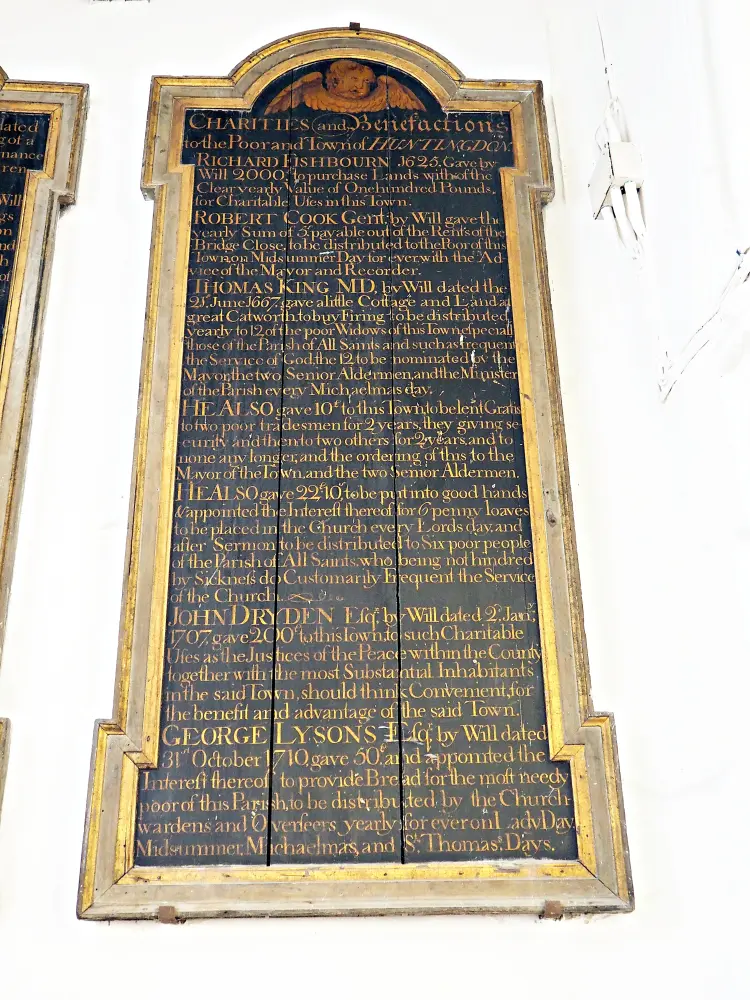 CHARITIES and Benefactions
to the Poor and Town of HUNTINGDON
RICHARD FISHBOURN 1625. Gave by
Will 2000£ to purchase Lands with of the
Clear yearly Value of One hundred Pounds,
for Charitable Uses in this Town.
ROBERT COOK Gent. by Will gave the
yearly Sum of 5£ payable out of the Rents of the
Bridge Close, to be distributed to the Poor of this
Town, on Midsummer Day for ever, with the Ad-
vice of the Mayor and Recorder.
THOMAS KING MD, by Will dated the
21st June 1667, gave a little Cottage and Land at
great Catworth, to buy Firing to be distributed
yearly to 12 of the poor Widows of this Town, especially
those of the Parish of All Saints and such as frequent
the Service of God, the 12 to be nominated by the
Mayor, the two Senior Aldermen, and the Minister
of the Parish every Michaelmas day.
HE ALSO gave 10£ to this Town, to be lent Gratis
to two poor tradesmen for 2 years, they giving se-
curity and then to two others for 2 years, and to
none any longer, and the ordering of this to the
Mayor of the Town, and the two Senior Aldermen.
HE ALSO gave 22£ 10s to be put into good hands
& appointed the Interest thereof for 6 penny loaves
to be placed in the Church every Lords day, and
after Sermon to be distributed to Six poor people
of the Parish of All Saints, who being not hindred
by Sickness do Customarily Frequent the Service
of the Church.
JOHN DRYDEN Esqr. by Will dated 2d Janry.
1707, gave 200£ to this Town, to such Charitable
Uses as the Justices of the Peace within the County
together with the most Substantial Inhabitants
in the said Town, should think Convenient, for
the benefit and advantage of the said Town.
GEORGE LYSONS Esqr. by Will dated
31st October 1710, gave 50£, and appointed the
Interest thereof to provide Bread for the most needy
poor of this Parish, to be distributed by the Church-
wardens and Overseers, yearly for ever on Lady Day,
Midsummer, Michaelmas, and St. Thomas's Days.